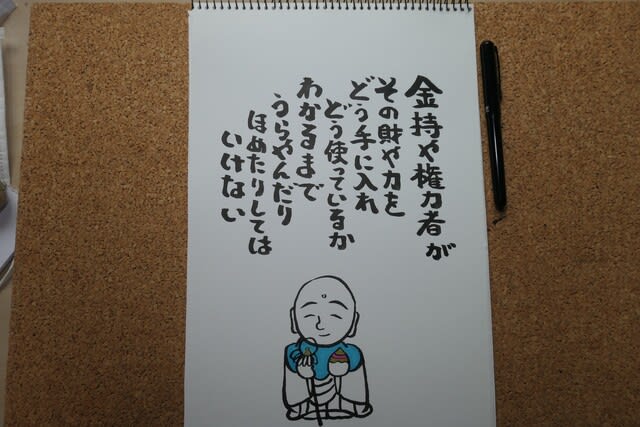 金持や権力者が
その財や力を
どう手に入れ
どう使っているか
わかるまで
うらやんだり
ほめたりしては
いけない